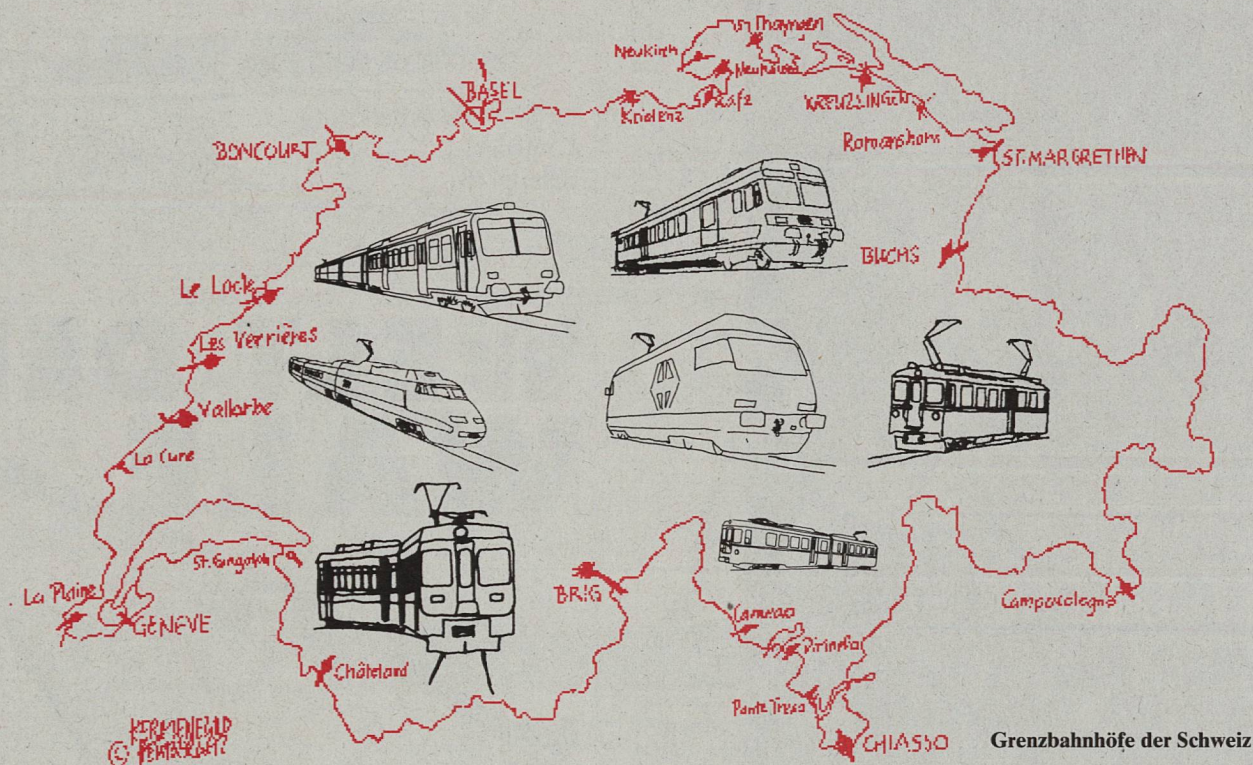 Thayngen
Neukirch
Neuhausen
BASEL
Koblenz
Rafz
KREUZLINGEN
BONCOURT
Romanshorn
ST. MARGRETHEN
BUCHS
Le Locle
Les Verrières
Vallorbe
La Cure
St. Gingolph
La Plaine
GENEVE
BRIG
Campocologno
Camedo
Dirinella
Châtelard
Ponte Tresa
CHIASSO
Grenzbahnhöfe der Schweiz
©